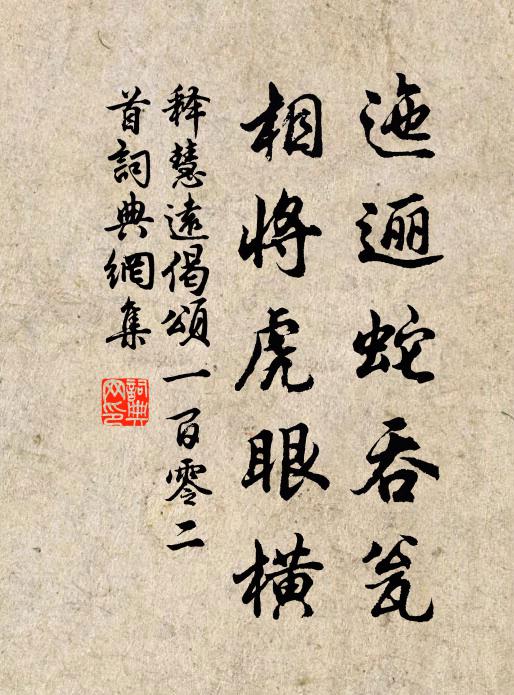 迤逦蛇吞瓮
相将虎眼横
释慧远偈颂一百零二
首词典網集
詞典
网印